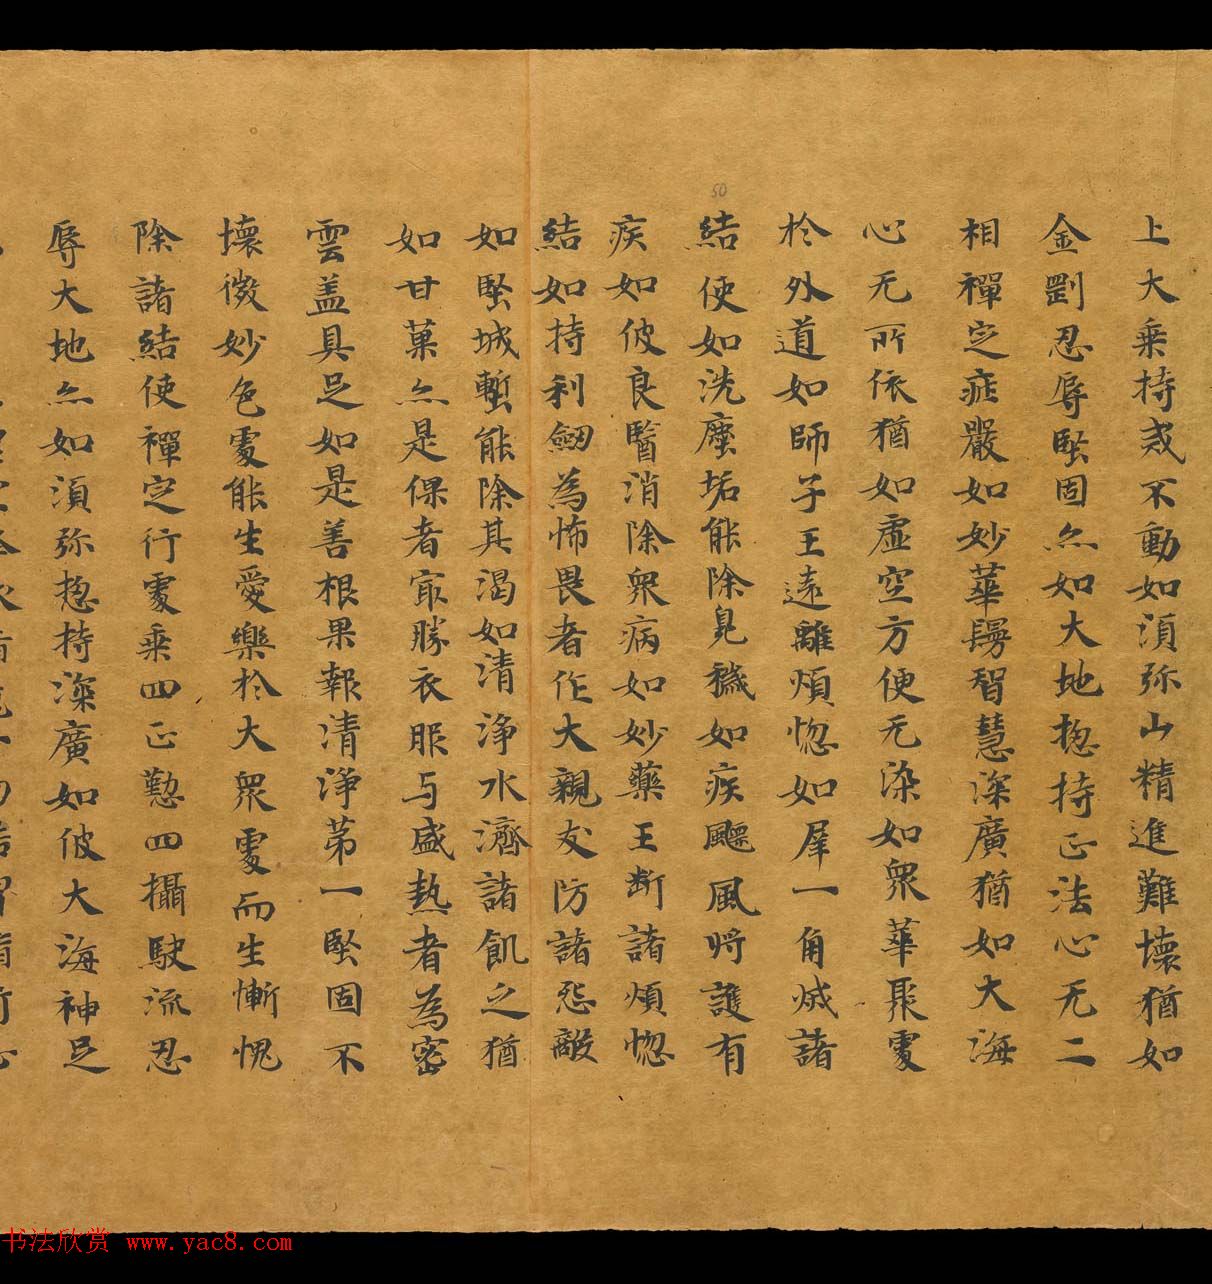 50
上大乗持戒不動如湏弥山精進難壞猶如
金剛忍辱堅固亦如大地揔持正法心无二
相禪定疰嚴如妙華鬘智慧深廣猶如大海
心无所依猶如虛空方便无染如衆華聚處
於外道如師子王遠離煩惚如犀一角烕諸
結使如洗塵垢能除臭穢如疾飃風將護有
疾如彼良醫消除衆病如妙藥王断諸煩惚
結如持利劒為怖畏者作大親友防諸惡敵
如堅城塹能除其渴如清淨水濟諸飢之猶
如甘菓亦是倮者冣勝衣服与盛熱者為密
雲盖具足如是善根果報清淨苐一堅固不
壞微妙色處能生愛樂於大衆處而生慚愧
除諸結使禪定行處乗四正懃四攝駛流忍
辱大地亦如湏弥揔持深廣如彼大海神足
书法欣赏 www.yac8.com